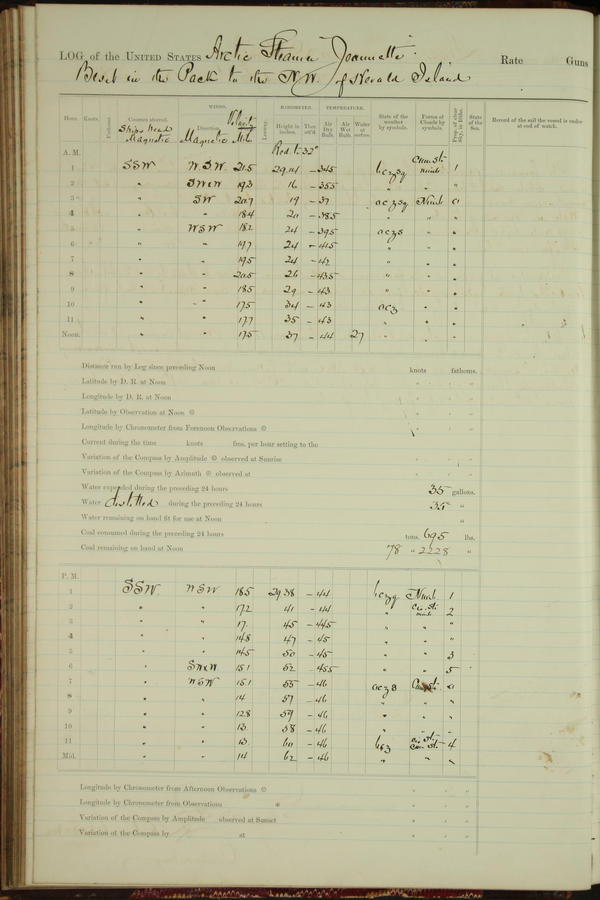 LOG of the UNITED STATES Arctic Steamer "Jeannette" Rate Guns
Beset in the Pack to the N.W. of Herald Island
WINDS. BAROMETER. TEMPERATURE.
Hour. Knots. Fathoms. Courses steered. Direction. Velocity Leeway. Height in inches. Ther. att'd. Air Dry Bulb. Air Wet Bulb. Water at surface. State of the weather by symbols. Forms of Clouds by symbols. State of the Sea. Record of the sail the vessel is under at end of watch.
Ships head Magnetic Magnetic
A. M. Red to 32°
1 SSW WSW 21.5 29.14 -34.5 1
2 " 19.3 16 -35.5 " "
3 " SW 20.7 19 -37 Nimb 0
4 " " 18.4 20 -38.5 " " "
5 " WSW 18.2 24 -39.5 " "
6 " " 19.7 24 -41.5 " " "
7 " " 19.5 24 -42 " " "
8 " " 20.5 26 -43.5 " " "
9 " " 18.5 29 -43 " " "
10 " " 17.5 34 -43 ocz " "
11 " " 17.7 35 -43 " " "
Noon. " " 17.5 37 -44 27 " " "
Distance run by Log since preceding Noon knots fathoms.
Latitude by D. R. at Noon ° ' "
Longitude by D. R. at Noon ° ' "
Latitude by Observation at Noon ° ' "
Longitude by Chronometer from Forenoon Observations ° ' "
Current during the time knots fms. per hour setting to the
Variation of the Compass by Amplitude observed at Sunrise ° ' "
Variation of the Compass by Azimuth observed at ° ' "
Water expended during the preceding 24 hours 35 gallons.
Water distilled during the preceding 24 hours 35 "
Water remaining on hand fit for use at Noon "
Coal consumed during the preceding 24 hours tons. 695 lbs.
Coal remaining on hand at Noon 78 " 2228 "
P. M.
1 SSW WSW 18.5 29.38 -44 Nimb 1
2 " " 17.2 41 -44 " 2
3 " " 17. 45 -44.5 " " "
4 " " 14.8 47 -45 " " "
5 " " 14.5 50 -45 " " 3
6 " 15.1 52 -45.5 " " 5
7 " WSW 15.1 55 -46 0
8 " " 14 57 -46 " " "
9 " " 12.8 59 -46 " " "
10 " " 13 58 -46 " " "
11 " " 13 60 -46 4
Mid. " " 14 62 -46 " " "
Longitude by Chronometer from Afternoon Observations ° ' "
Longitude by Chronometer from Observations ° ' "
Variation of the Compass by Amplitude observed at Sunset ° ' "
Variation of the Compass by at ° ' "